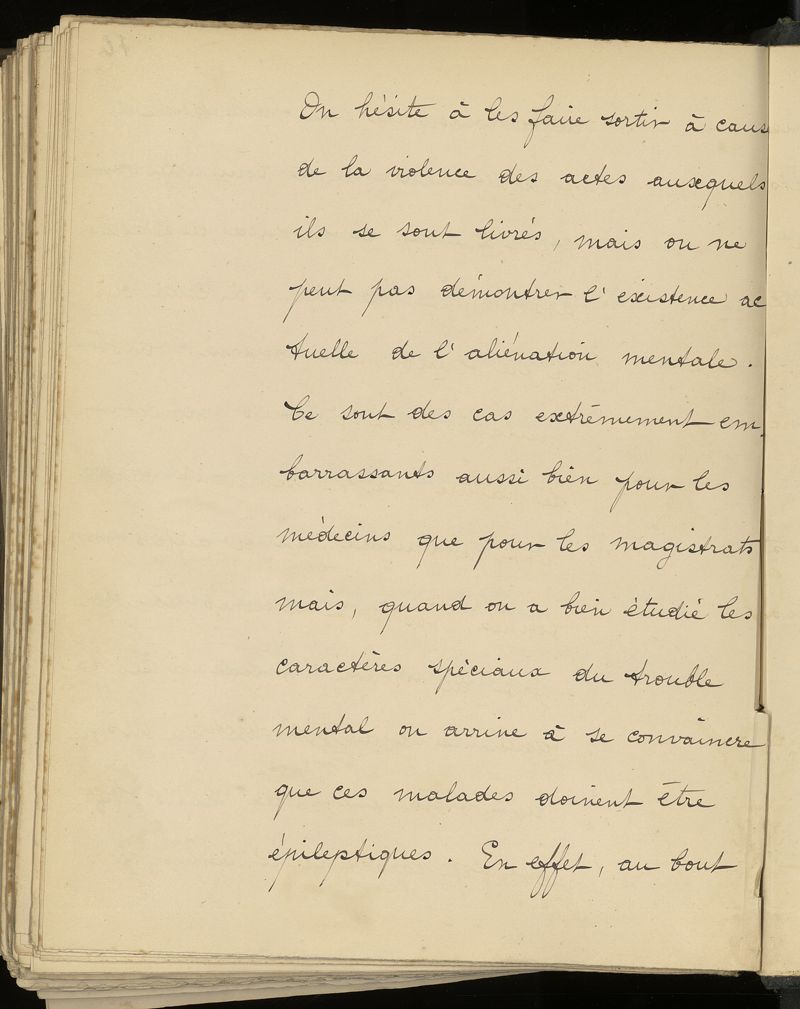 On hésite à les faire sortir à caus
de la violence des actes auxquels
ils se sont livrés, mais on ne
peut pas démontrer l'existence ac
tuelle de l'aliénation mentale.
Ce sont des cas extrêmement em-
barrassants aussi bien pour les
médecins que pour les magistrats
mais, quand on a bien étudié les
caractères spéciaux du trouble
mental on arrive à se convaincre
que ces malades doivent être
épileptiques. En effet, au bout